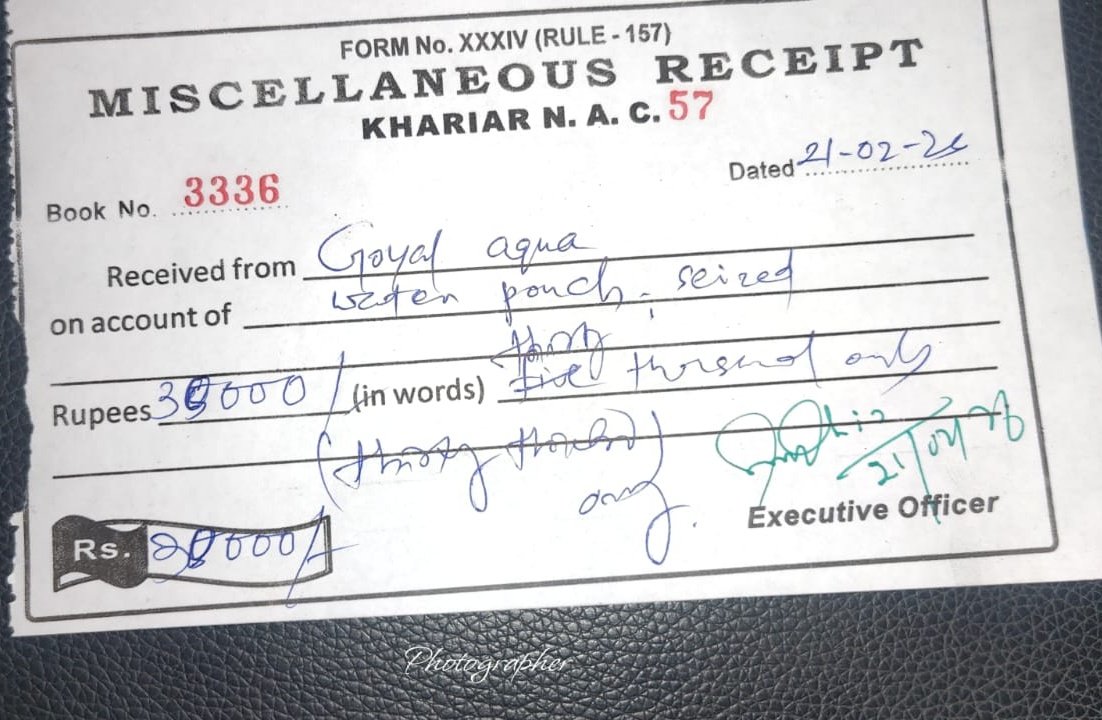 FORM No. XXXIV (RULE - 157)
MISCELLANEOUS RECEIPT
KHARIAR N. A. C. 57
Book No. 3336
Dated 21-02-26
Received from Goyal aqua
on account of water pouch. seized
thirty
Rupees 30000/ (in words) five thousand only
(thirty thousand)
only.
21/02/26
Executive Officer
Rs. 30000/-
Photographer